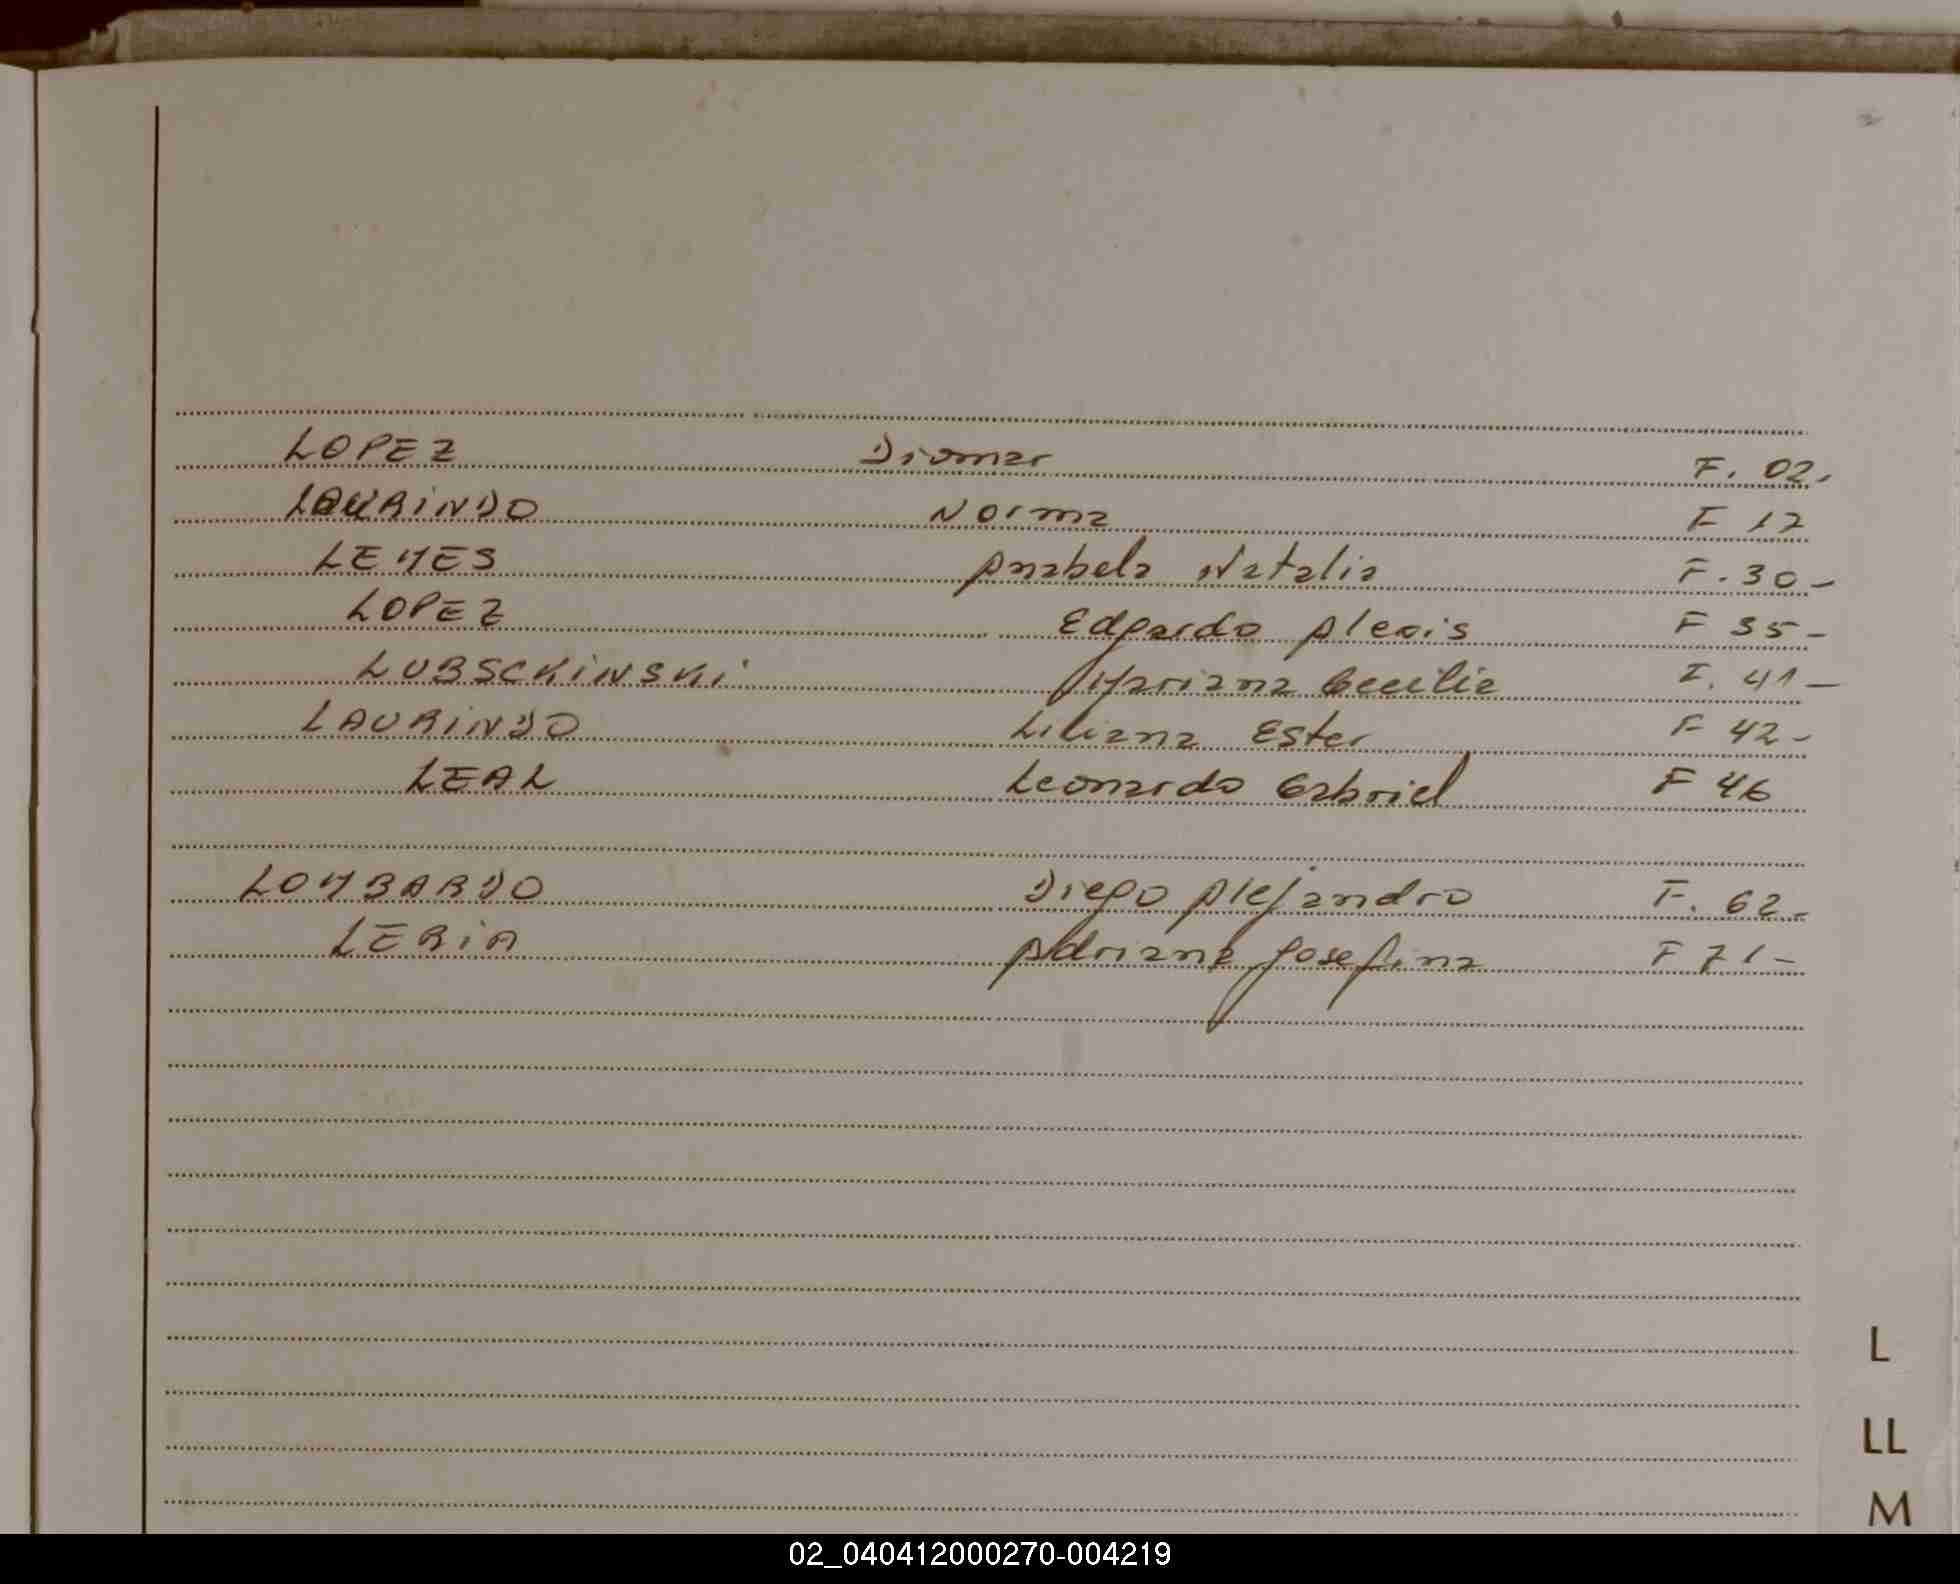 LOPEZ Diomar F. 02.
LAURINDO Norma F 17
LEMES Anabela Natalia F. 30-
LOPEZ Edgardo Alexis F 35-
LUBSCKINSKI Mariana Cecilia F. 41-
LAURINDO Liliana Ester F 42-
LEAL Leonardo Gabriel F 46
LOMBARDO Diego Alejandro F. 62-
LERIA Adriana Josefina F 71-
L
LL
M
02_040412000270-004219